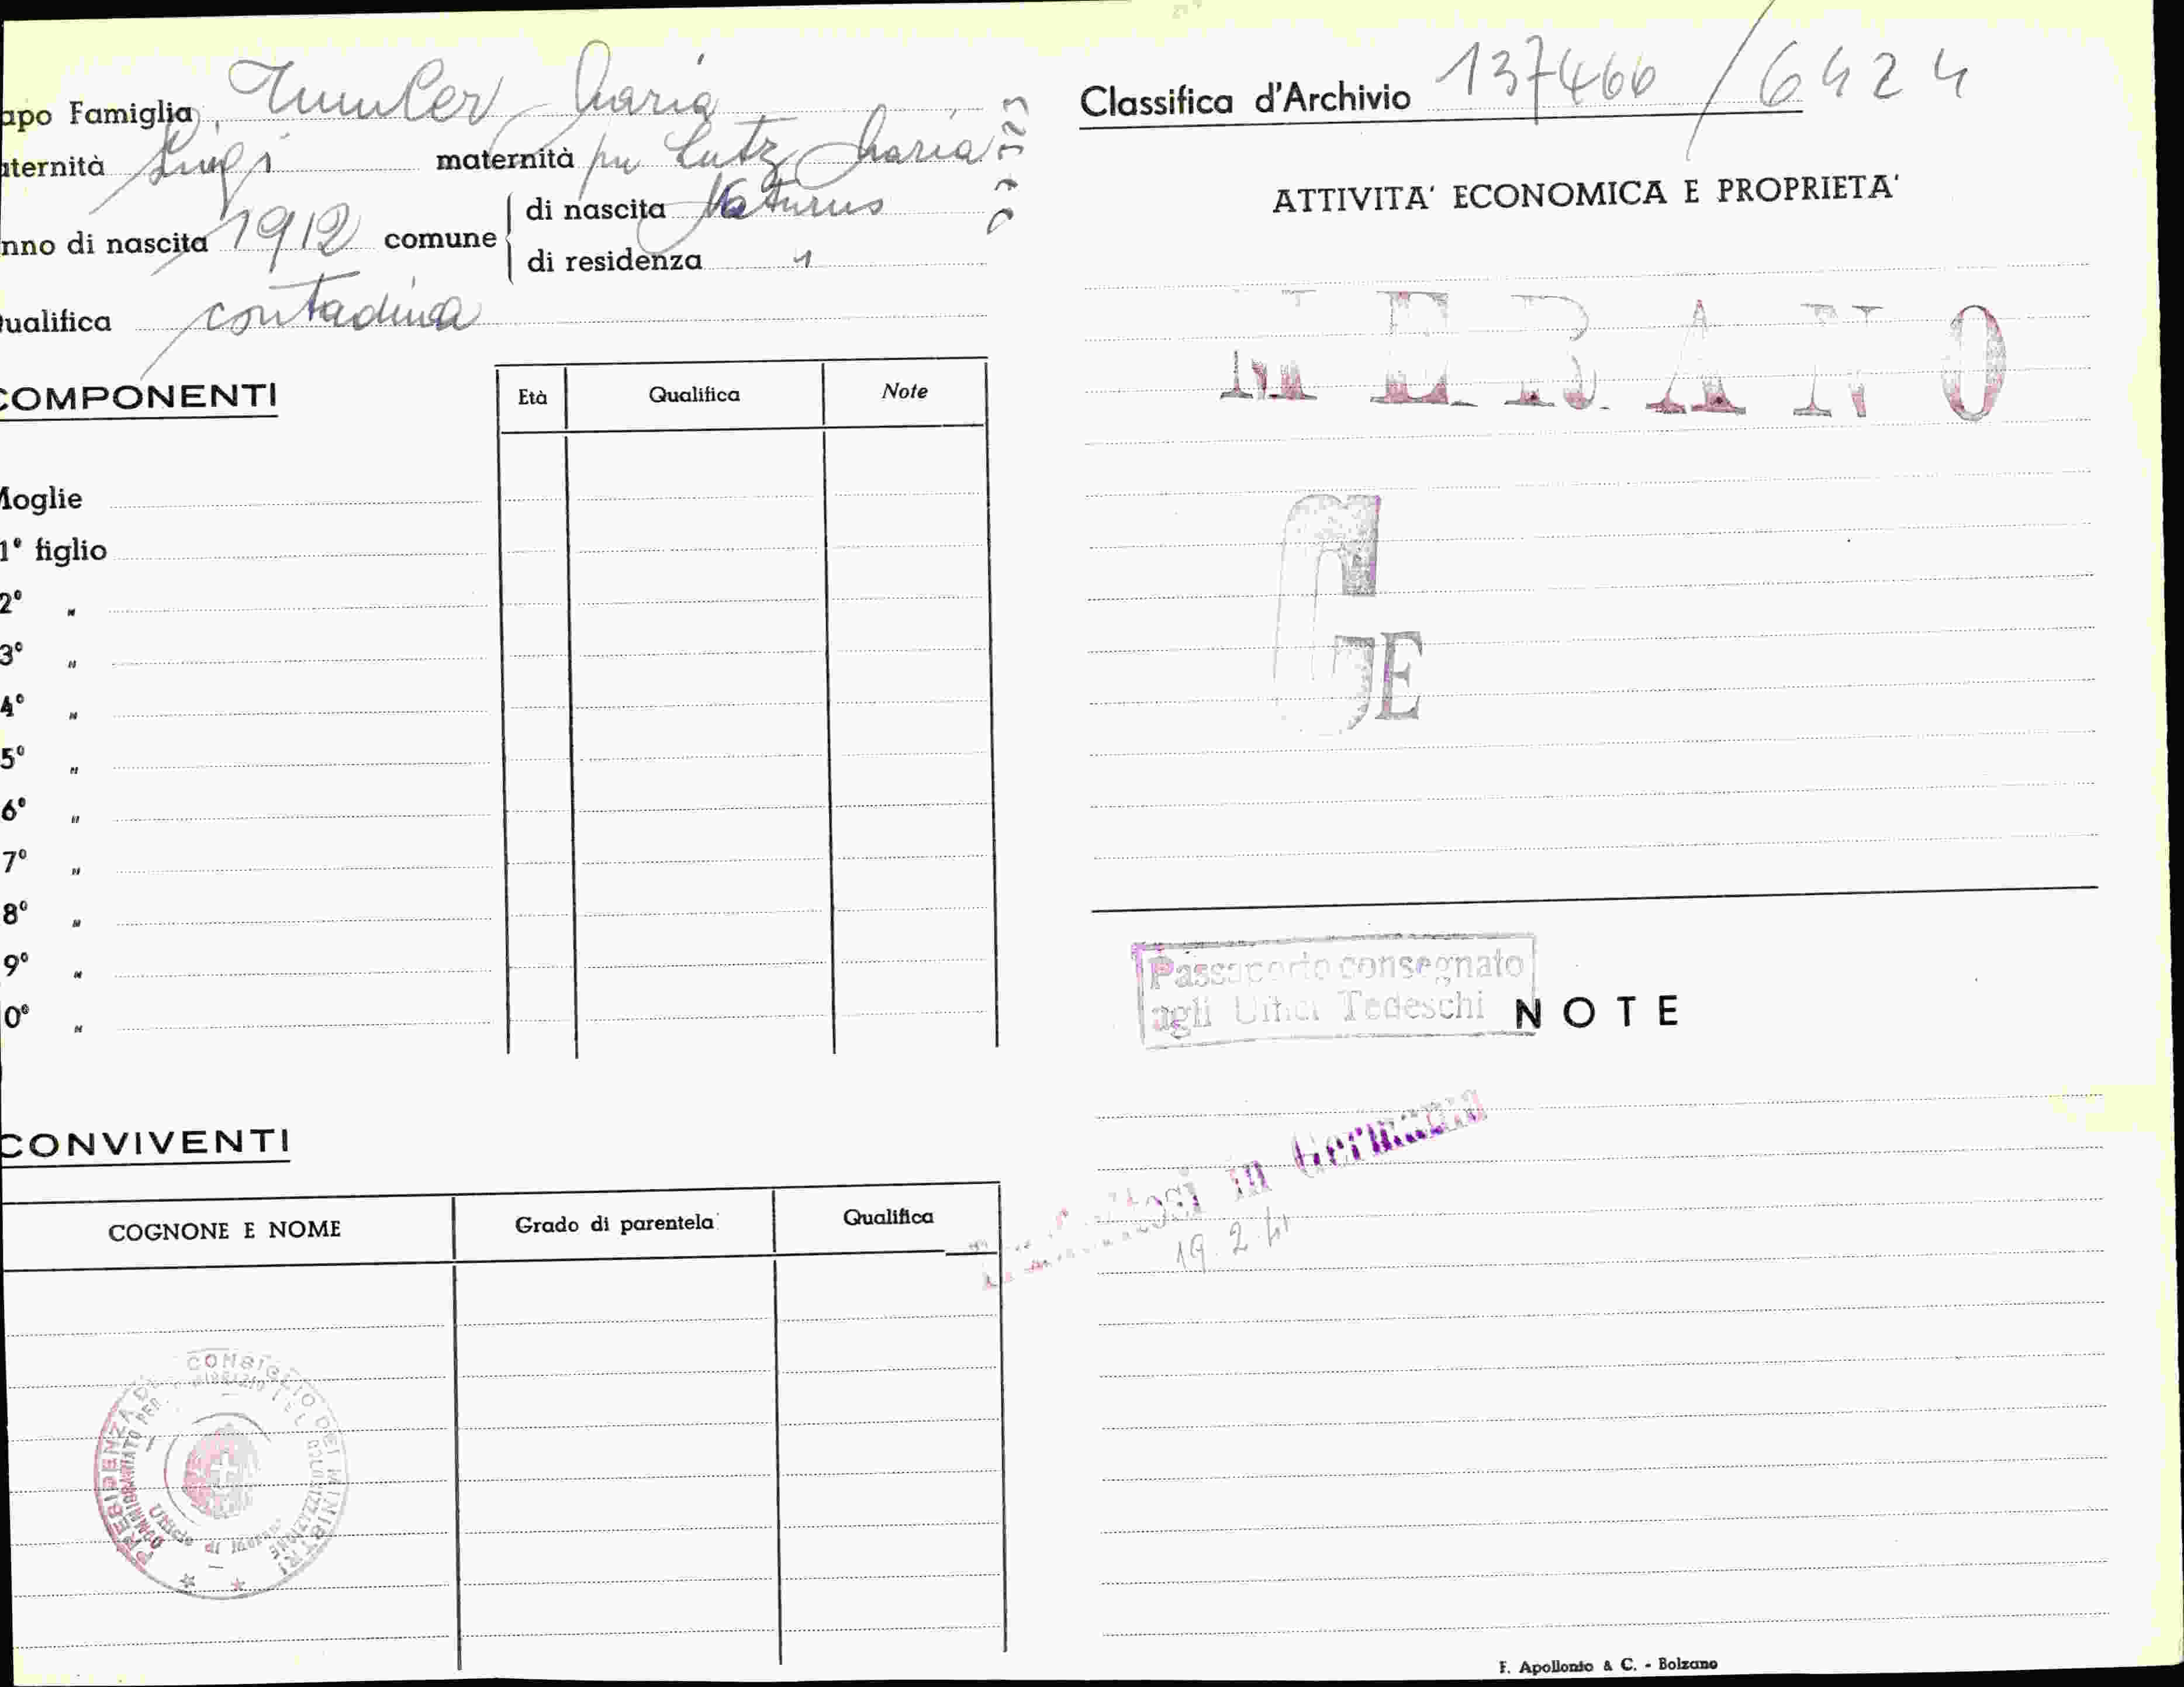 apo Famiglia Maria
aternità Luigi maternità fu Lutz Maria
nno di nascita 1912 comune di nascita Naturns
di residenza "
ualifica contadina
COMPONENTI
Età Qualifica Note
Moglie
1° figlio
2° "
3° "
4° "
5° "
6° "
7° "
8° "
9° "
0° "
CONVIVENTI
COGNONE E NOME Grado di parentela Qualifica
PRESIDENZA DEL CONSIGLIO DEI MINISTRI
Classifica d'Archivio 137466 / 6424
ATTIVITA' ECONOMICA E PROPRIETA'
MERANO
GE
Passaporto consegnato
agli Uffici Tedeschi
NOTE
in Germania
19.2.41
F. Apollonio & C. - Bolzano